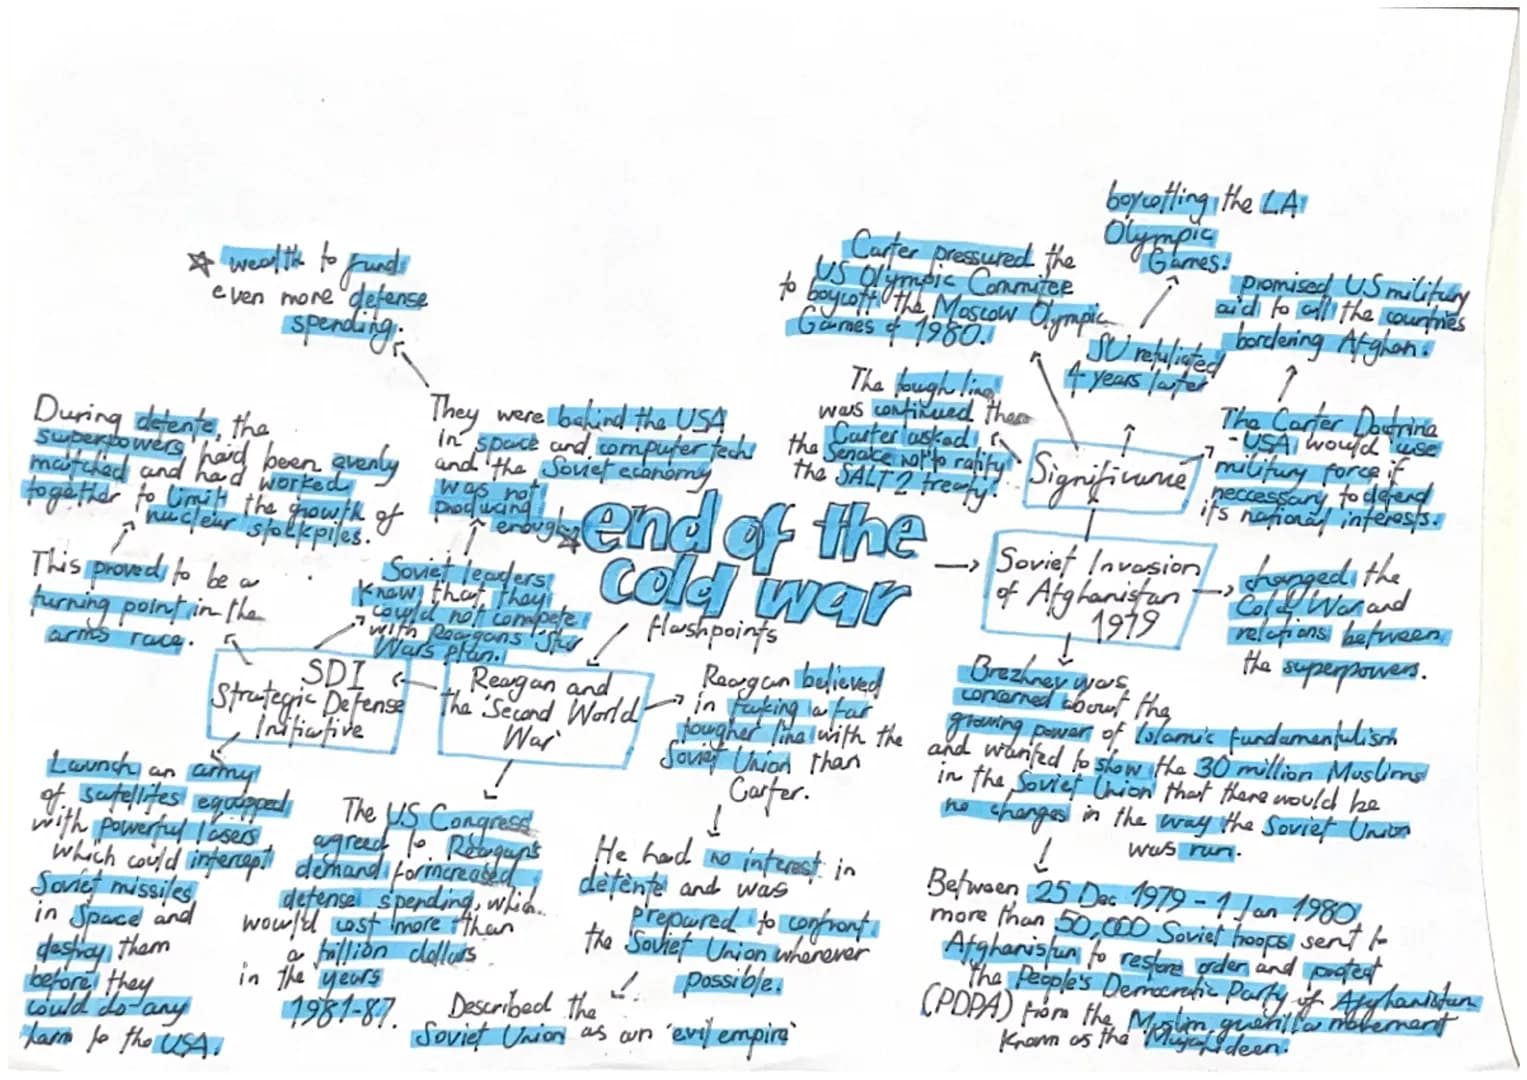 end of the
cold war
flashpoints
Soviet Invasion
of Afghanistan
1979
changed the
Cold War and
relations between
the superpowers.
Significance
The tough line
was continued then
Carter asked
the Senate not to ratify
the SALT 2 treaty.
Carter pressured the
US Olympic Commitee
to boycott the Moscow Olympic
Games of 1980.
SU retaliated
4 years later
boycotting the LA
Olympic
Games.
The Carter Doctrine
- USA would use
military force if
neccessary to defend
its national interests.
promised US military
aid to all the countries
bordering Afghan.
Brezhnev was
concerned about the
growing power of Islamic fundamentalism
and wanted to show the 30 million Muslims
in the Soviet Union that there would be
no changes in the way the Soviet Union
was run.
Between 25 Dec 1979 - 1 Jan 1980
more than 50,000 Soviet troops sent to
Afghanistan to restore order and protect
the People's Democratic Party of Afghanistan
(PDPA) from the Muslim guerilla movement
known as the Mujahideen.
Reagan and
the 'Second World
War'
Reagan believed
in taking a far
tougher line with the
Soviet Union than
Carter.
He had no interest in
détente and was
prepared to confront
the Soviet Union wherever
possible.
Described the
Soviet Union as an 'evil empire'
The US Congress
agreed to Reagan's
demand for increased
defense spending, which
would cost more than
a trillion dollars
in the years
1981-87.
SDI
Strategic Defense
Initiative
Soviet leaders
knew that they
could not compete
with Reagans 'Star
Wars' plan.
They were behind the USA
in space and computer tech
and the Soviet economy
was not
producing
enough
wealth to fund
even more defense
spending.
This proved to be a
turning point in the
arms race.
During detente, the
superpowers had been evenly
matched and had worked
together to limit the growth of
nuclear stockpiles.
Launch an army
of satellites equipped
with powerful lasers
which could intercept
Soviet missiles
in space and
destroy them
before they
could do any
harm to the USA.